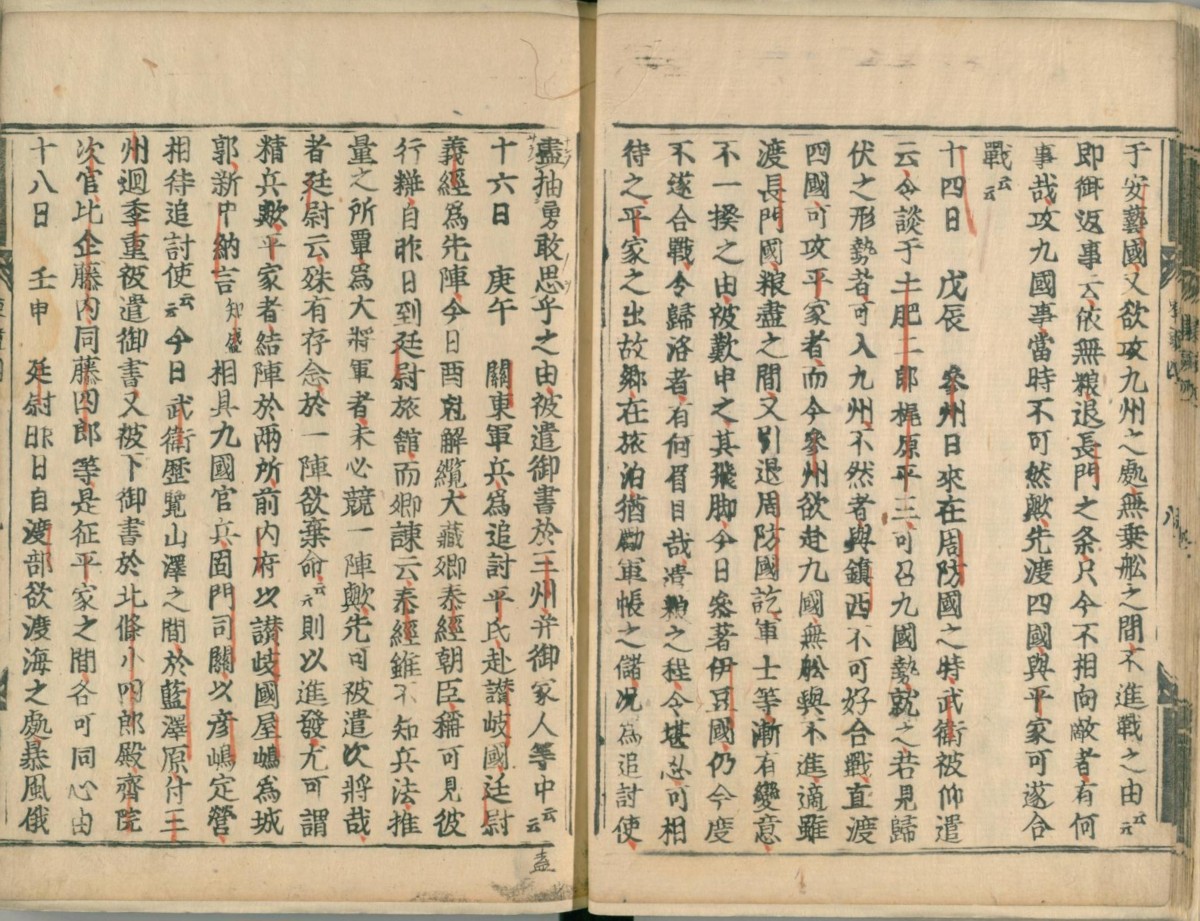 于安藝國又欲攻九州之處無乗舩之間不進戰之由云云
即御返事云依無粮退長門之条只今不相向敵者有何
事哉攻九國事當時不可然歟先渡四國與平家可遂合
戰云云
十四日　戊辰　參州日來在周防國之時武衛被仰遣
云令談于土肥二郎梶原平三可召九國勢就之若見歸
伏之形勢者可入九州不然者與鎮西不可好合戰直渡
四國可攻平家者而今參州欲赴九國無舩與不進適雖
渡長門國粮盡之間又引退周防國訖軍士等漸有變意
不一揆之由被歎申之其飛脚今日參著伊豆國仍今度
不遂合戰令歸洛者有何眉目哉遣粮之程令堪忍可相
待之平家之出故郷在旅泊猶勵軍帳之儲况為追討使
盡抽勇敢思乎之由被遣御書於三州并御家人等中云云
十六日　庚午　關東軍兵爲追討平氏赴讃岐國廷尉
義經爲先陣今日酉尅解纜大藏卿泰經朝臣稱可見彼
行粧自昨日到廷尉旅館而卿諫云泰經雖不知兵法推
量之所覃爲大將軍者未必競一陣歟先可被遣次將哉
者廷尉云殊有存念於一陣欲棄命云云則以進發尤可謂
精兵歟平家者結陣於兩所前内府以讃岐國屋嶋爲城
郭新中納言知盛相具九國官兵固門司關以彦嶋定營
相待追討使云云今日武衛歴覽山澤之間於藍澤原付三
州迴季重被遣御書又被下御書於北條小四郎殿齊院
次官比企藤内同藤四郎等是征平家之間各可同心由
十八日　壬申　廷尉昨日自渡部欲渡海之處暴風俄
盡